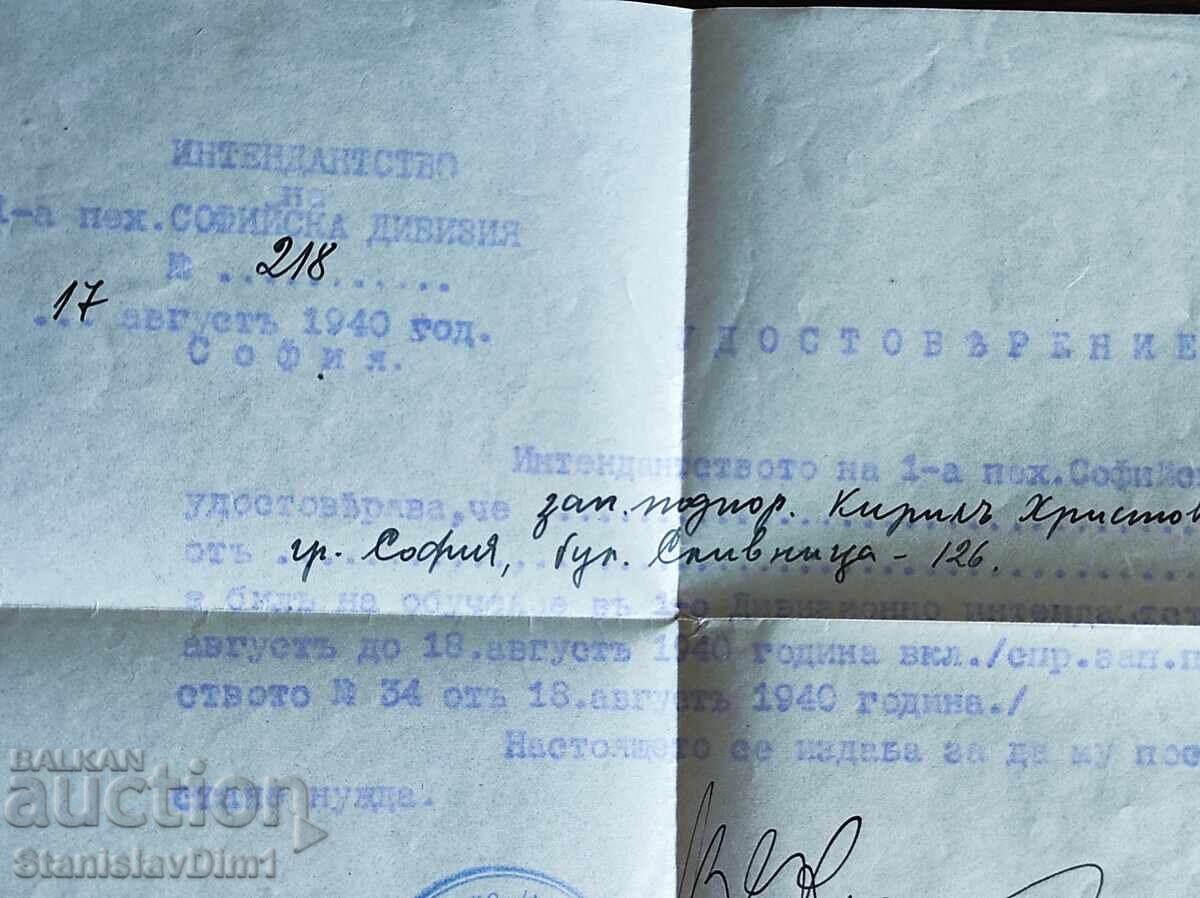 ИНТЕНДАНТСТВО
на
1-а пех.СОФИЙСКА ДИВИЗИЯ
№ ...218...
17 августъ 1940 год.
София.
УДОСТОВѢРЕНИЕ
Интендантството на 1-а пех.Софийс
удостовѣрява,че зап. подпор. Кирилъ Христов
отъ гр. София, бул. Сливница - 126.
е билъ на обучение въ 1-о Дивизионно интендантс
августъ до 18.августъ 1940 година вкл./спр.зап.п
ството № 34 отъ 18.августъ 1940 година./
Настоящето се издава за да му пос
стане нужда.
BALKAN
auction
StanislavDim1